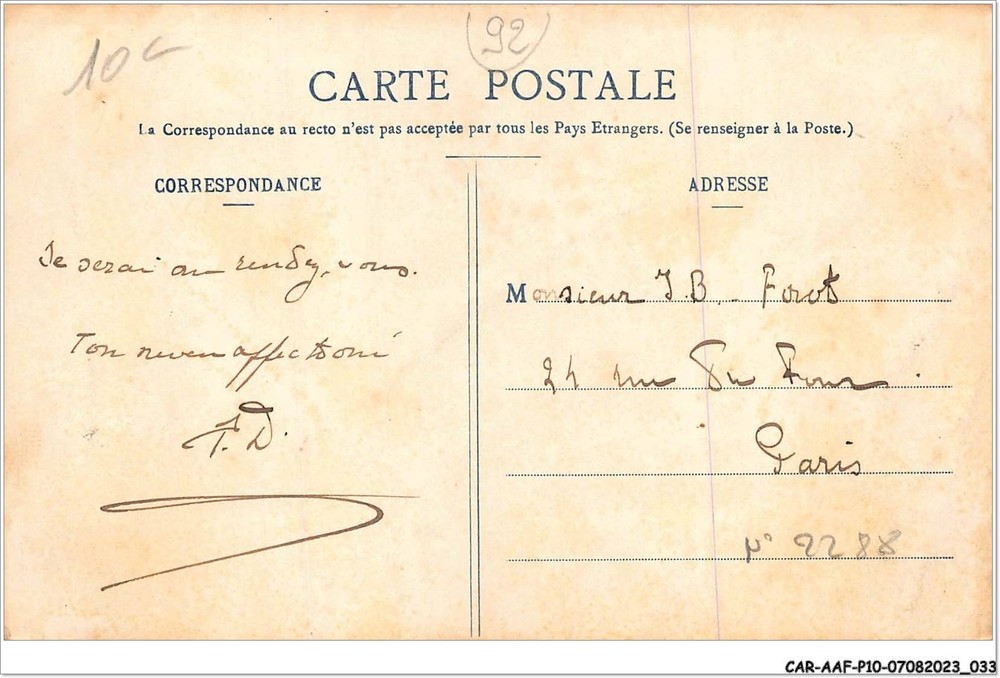 10c
92
CARTE POSTALE
La Correspondance au recto n'est pas acceptée par tous les Pays Etrangers. (Se renseigner à la Poste.)
CORRESPONDANCE
Je serai au rendez-vous.
Ton neveu affectionné
F.D.
ADRESSE
Monsieur J.B. Forot
24 rue du Four.
Paris
N° 2288
CAR-AAF-P10-07082023_033